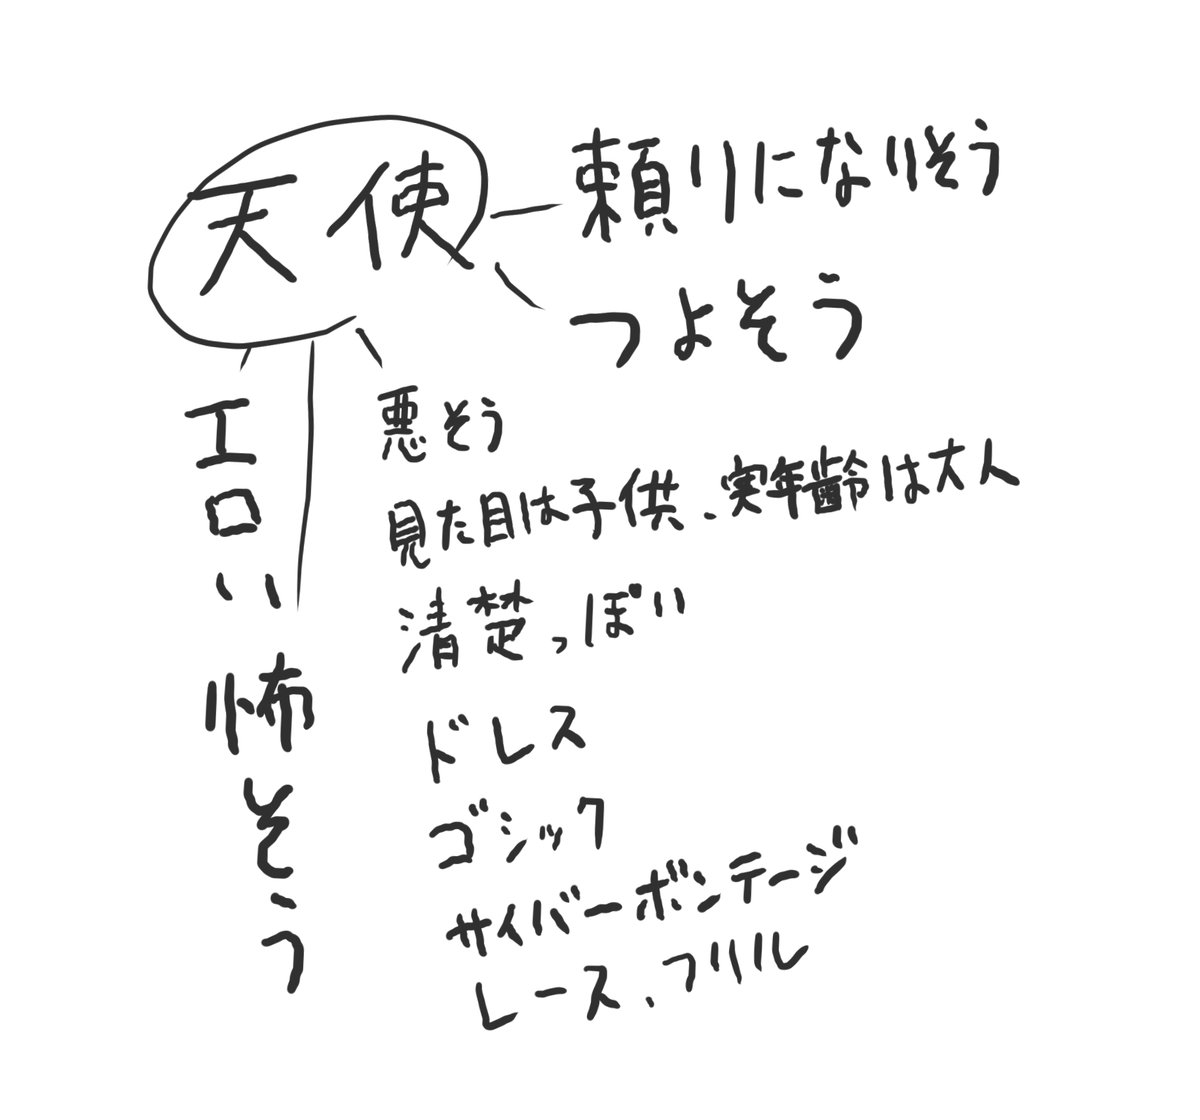 天使
頼りになりそう
つよそう
エロい
怖そう
悪そう
見た目は子供、実年齢は大人
清楚っぽい
ドレス
ゴシック
サイバーボンテージ
レース、フリル